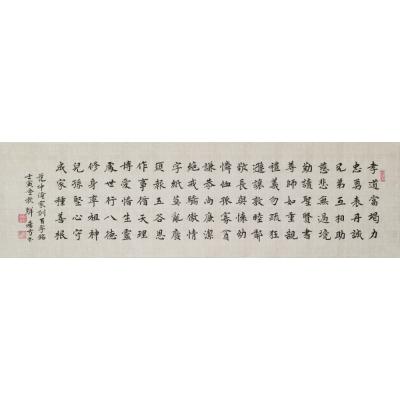 孝道當竭力
忠勇表丹誠
兄弟互相助
慈悲無過境
勤讀聖賢書
尊師如重親
禮義勿疏狂
遜讓敦睦鄰
敬長與懷幼
憐恤孤寡貧
謙恭尚廉潔
絕戒驕傲情
字紙莫亂廢
須報五谷恩
作事循天理
博愛惜生靈
處世行八德
修身奉祖神
兒孫堅心守
成家種善根
范仲淹家訓百字銘
壬寅金秋